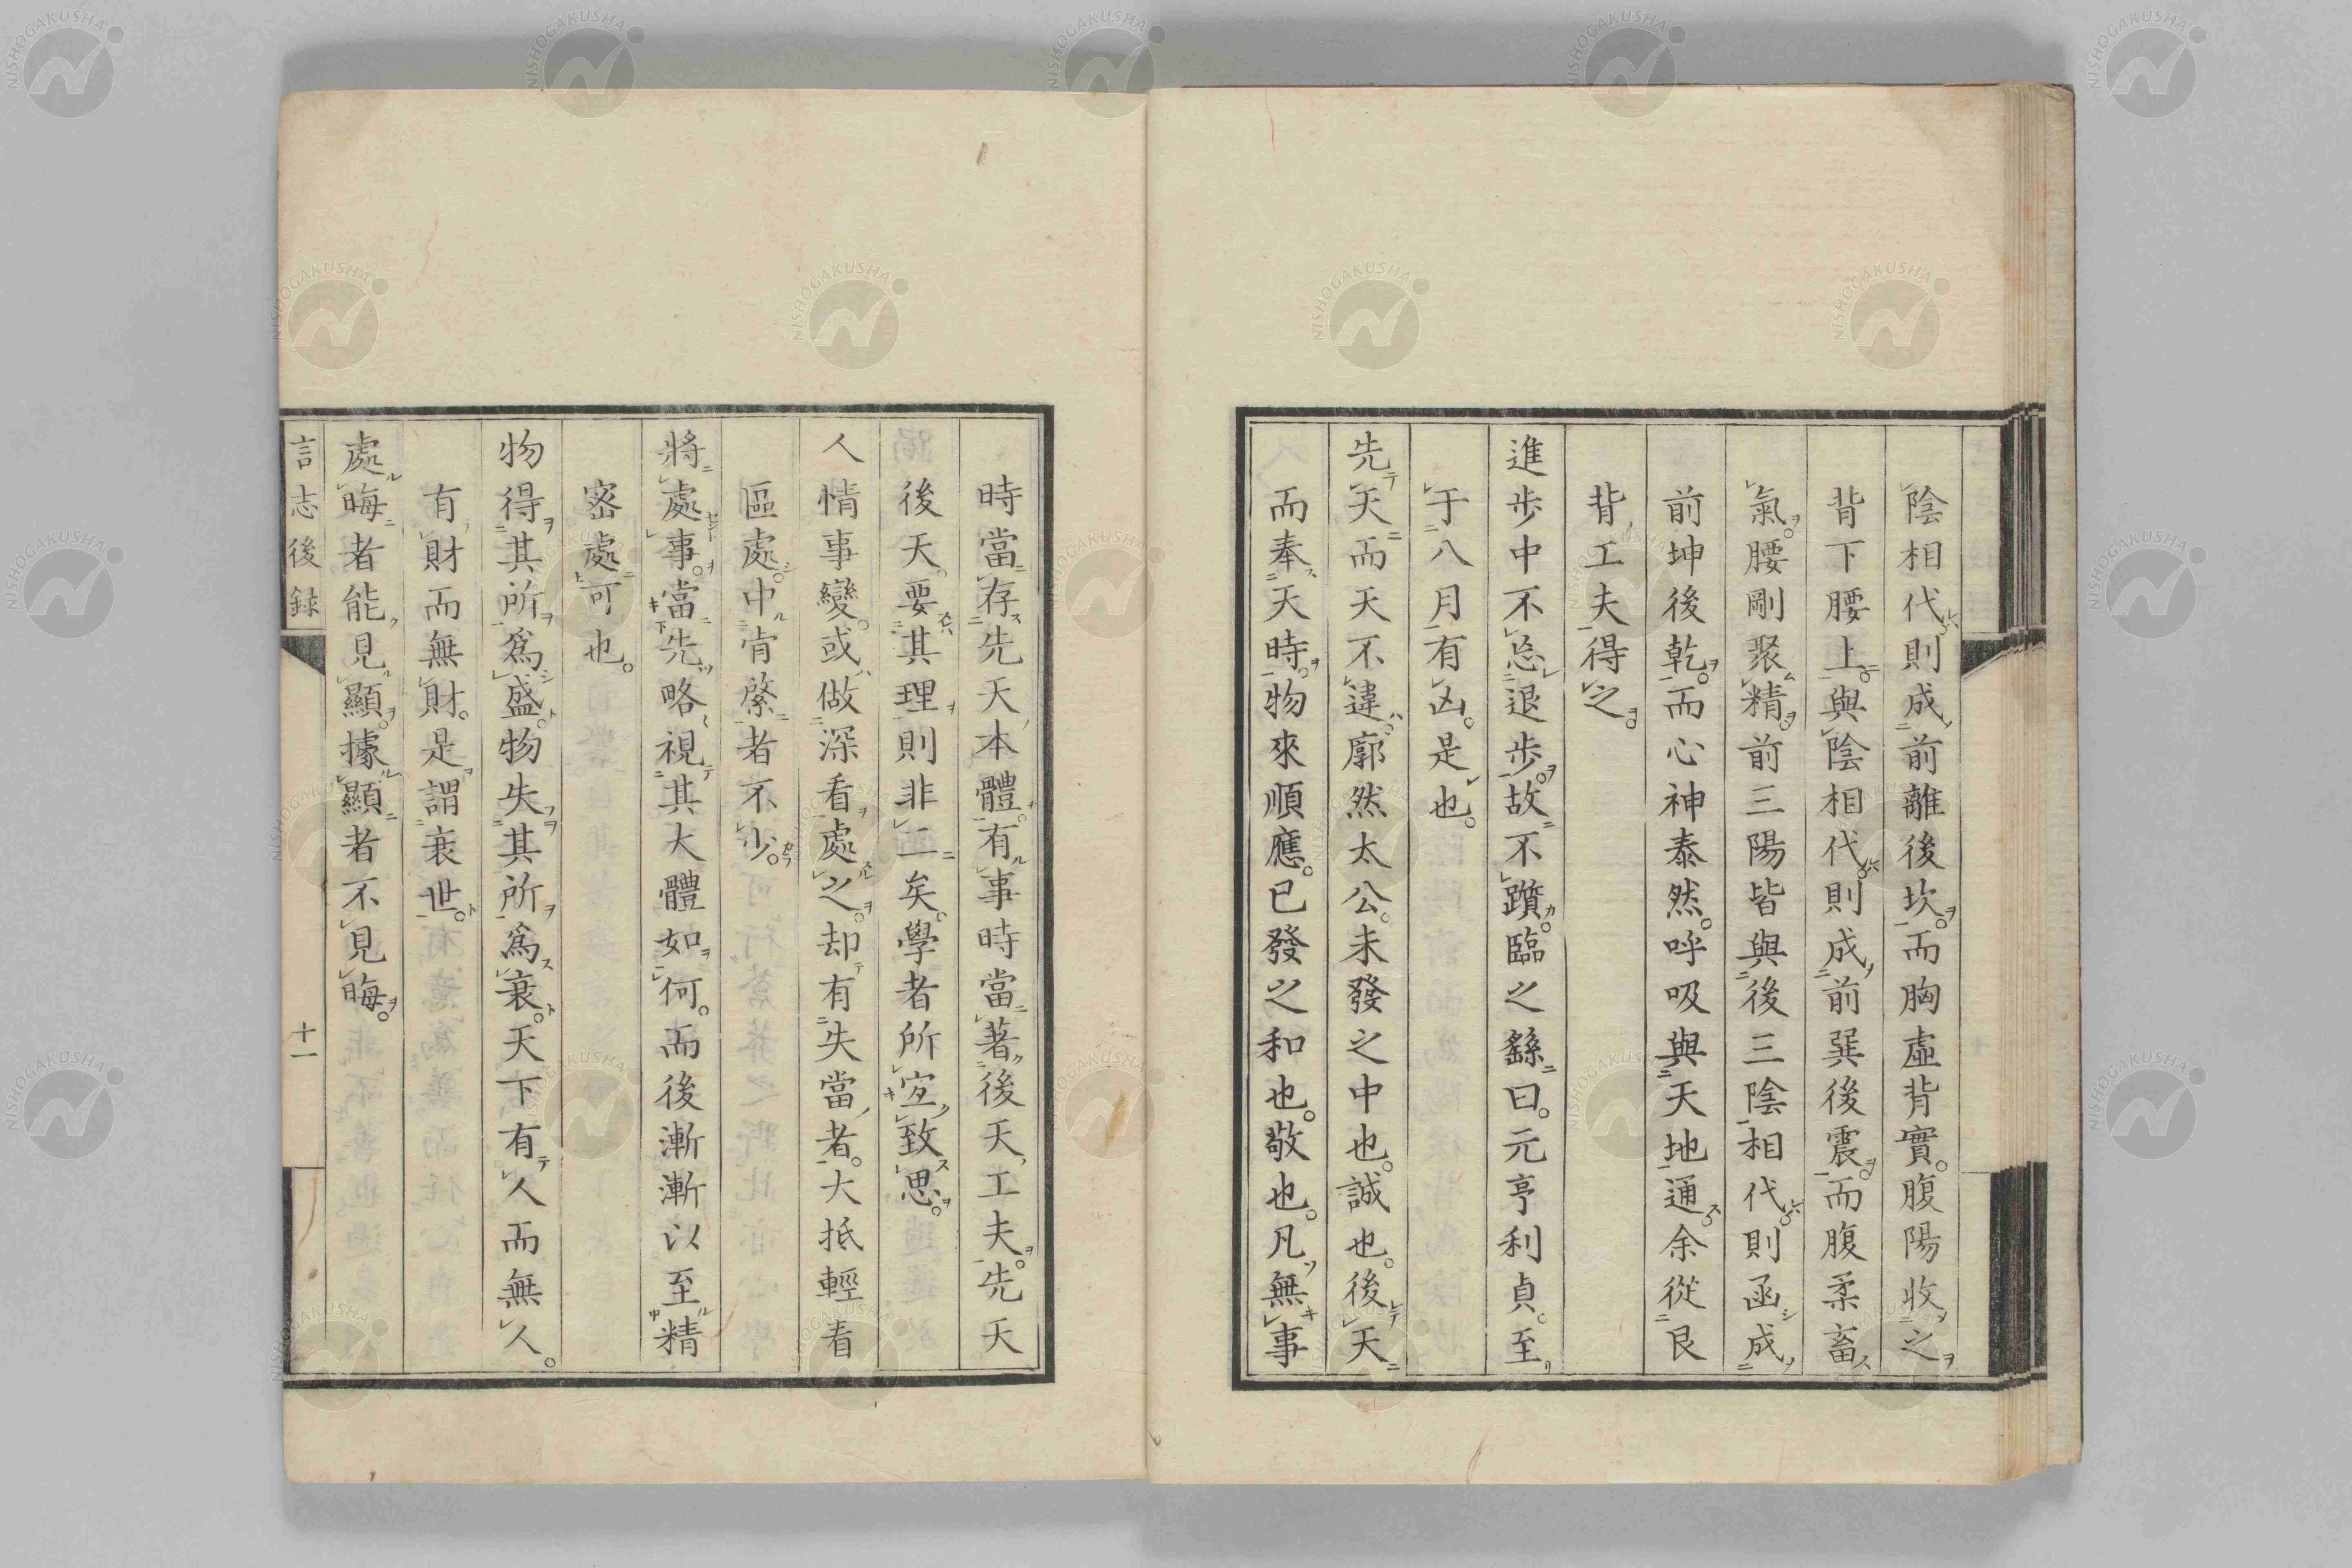 陰相代則成前離後坎。而胸虛背實。腹陽收之
背下腰上。與陰相代則成前巽後震。而腹柔畜
氣。腰剛聚精。前三陽皆與後三陰相代則函成
前坤後乾。而心神泰然。呼吸與天地通。余從艮
背工夫得之。
進步中不忘退步。故不躓。臨之繇曰。元亨利貞。至
于八月有凶。是也。
先天而天不違。廓然太公。未發之中也。誠也。後天
而奉天時。物來順應。已發之和也。敬也。凡無事
時當存先天本體。有事時當著後天工夫。先天
後天。要其理則非二矣。學者所宜致思。
人情事變。或做深看處之。却有失當者。大抵輕看
區處。中肯綮者不少。
將處事。當先略視其大體如何。而後漸漸以至精
密處可也。
物得其所為盛。物失其所為衰。天下有人而無人。
有財而無財。是謂衰世。
處晦者能見顯。據顯者不見晦。
言志後録
十一
NISHOGAKUSHA